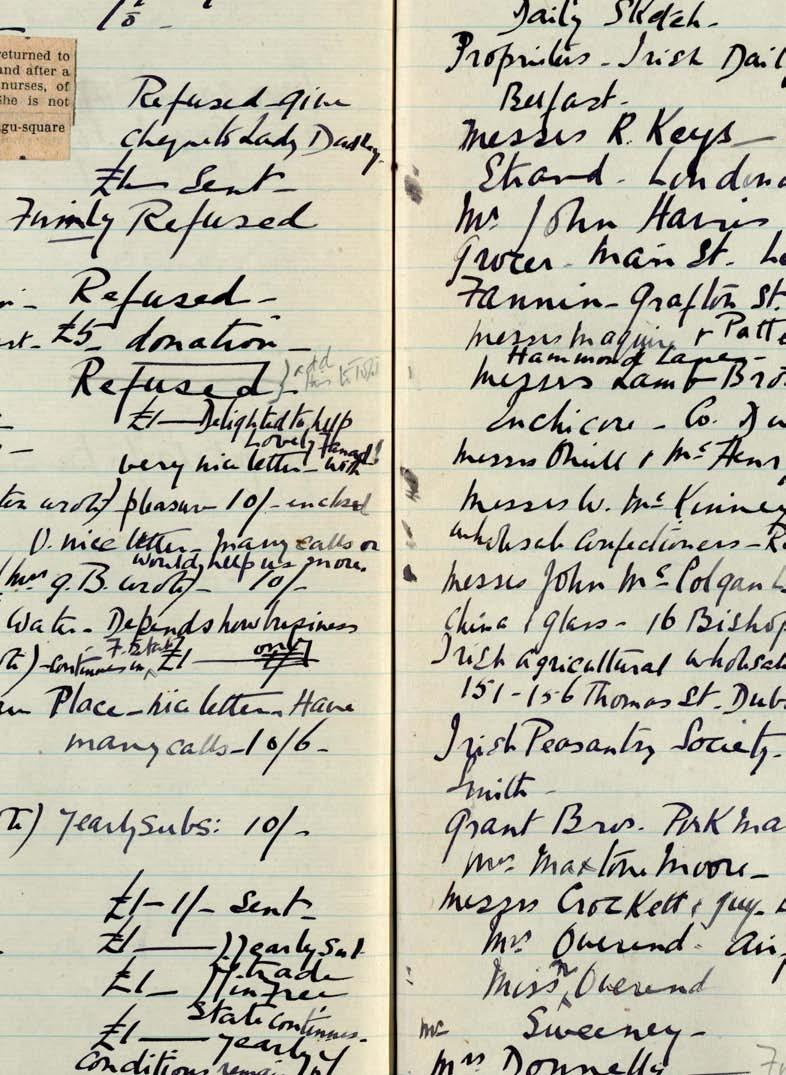 returned to
and after a
nurses, of
She is not
gu-square
Refused give
cheque to Lady Dudley.
£1 — Sent —
Firmly Refused
Refused —
£5 donation —
Refused
add this to
£1 — Delighted to help
Lovely
very nice letter — with
wrote) pleasure — 10/- enclosed
V. nice letter — many calls or
would help us more.
(Mrs G.B. wrote) — 10/-
Water — Depends how business
F. State
) — continues in £1 — only
Place — nice letter. Have
many calls — 10/6 —
) Yearly Subs: 10/-
£1 - 1/- Sent —
£1 — If yearly Sub.
£1 — If trade
in Free
State continues.
£1 — yearly if
conditions remain
Daily Sketch.
Proprietors — Irish Daily
Belfast.
Messrs R. Keys —
Strand — London
Mr John Harris
Grocer. Main St.
Fannin — Grafton St.
Messrs Maguire &
Hammond Lane —
Messrs Lamb Bros
Inchicore — Co.
Messrs O'Neill & McHenr
Messrs W. McKinney
wholesale Confectioners —
Messrs John McColgan
China & Glass — 16 Bishop
Irish Agricultural Wholesale
151-156 Thomas St. Dub
Irish Peasantry Society.
Smith —
Grant Bros. Pork
Mrs Maxtone Moore —
Messrs Crockett & Guy.
Mrs Overend.
Miss N Overend
Mr Sweeney —
Mrs Donnelly —